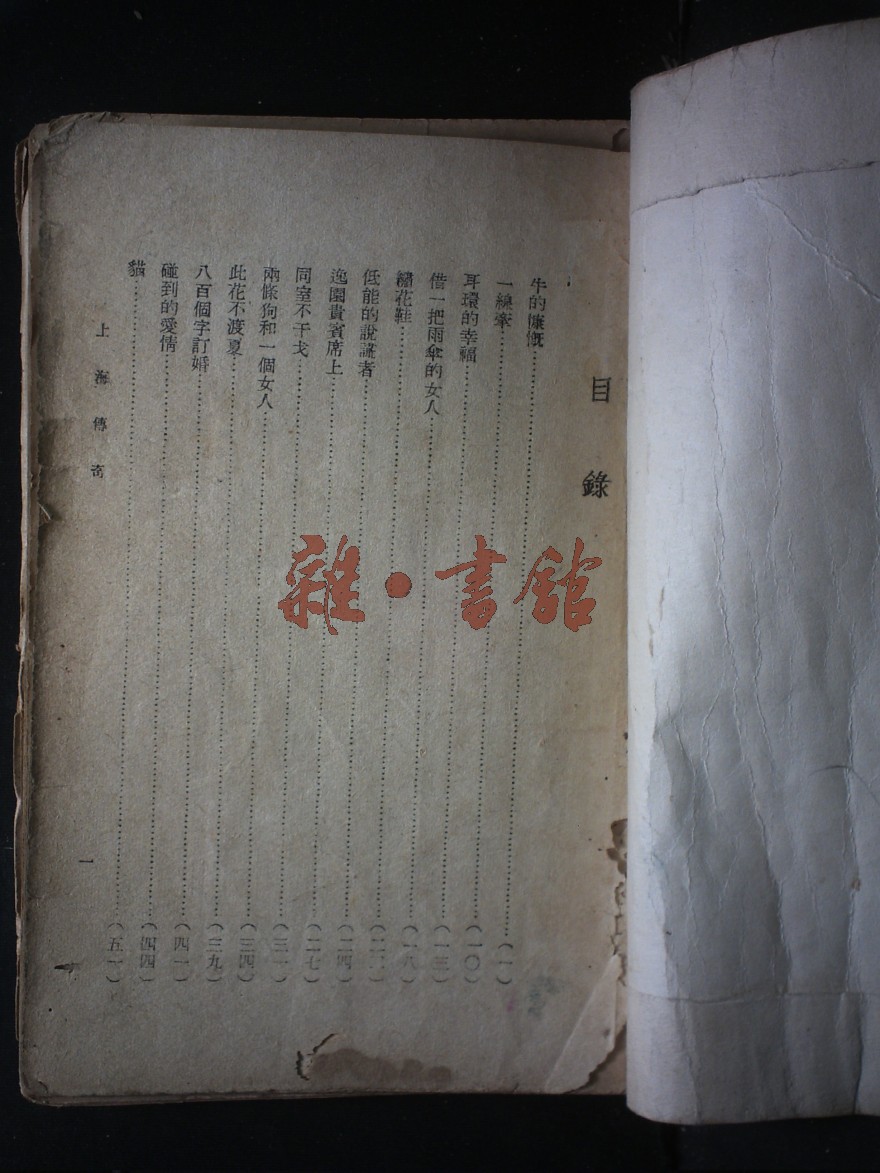 目錄
牛的慷慨……(一)
一線牽……(一〇)
耳環的幸福……(一三)
借一把雨傘的女人……(一八)
繡花鞋……(二二)
低能的說謊者……(二四)
逸園貴賓席上……(二七)
同室不干戈……(三一)
兩條狗和一個女人……(三四)
此花不渡夏……(三九)
八百個字訂婚……(四一)
碰到的愛情……(四四)
貓……(五一)
上海傳奇
一
雜·書館